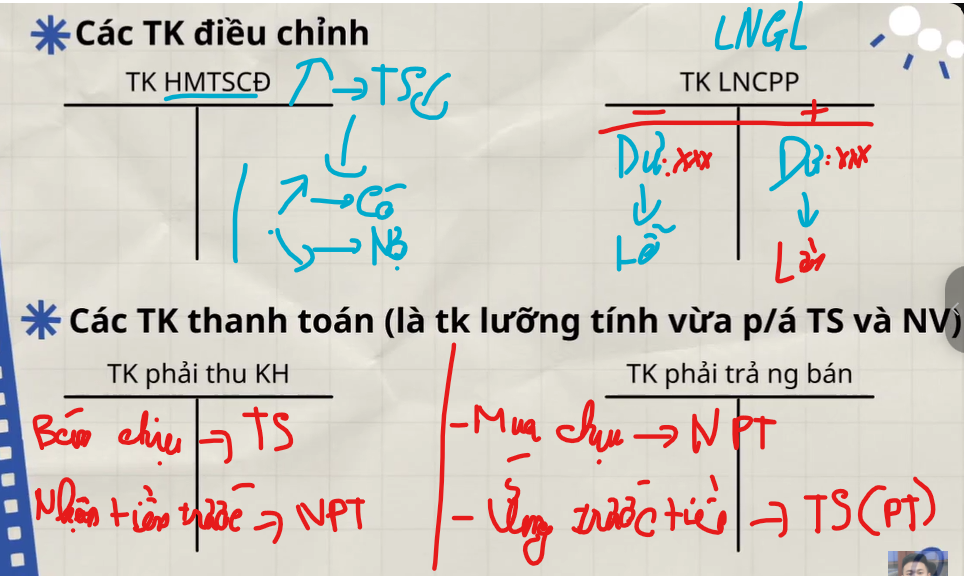 Các TK điều chỉnh
LNGL
TK HMTSCĐ
→ TS
→ Có
→ Nợ
TK LNCPP
− +
Dư: xxx Dư: xxx
Lỗ Lãi
Các TK thanh toán (là tk lưỡng tính vừa p/á TS và NV)
TK phải thu KH
Bán chịu → TS
Nhận tiền trước → NPT
TK phải trả ng bán
- Mua chịu → NPT
- Ứng trước tiền → TS (PT)